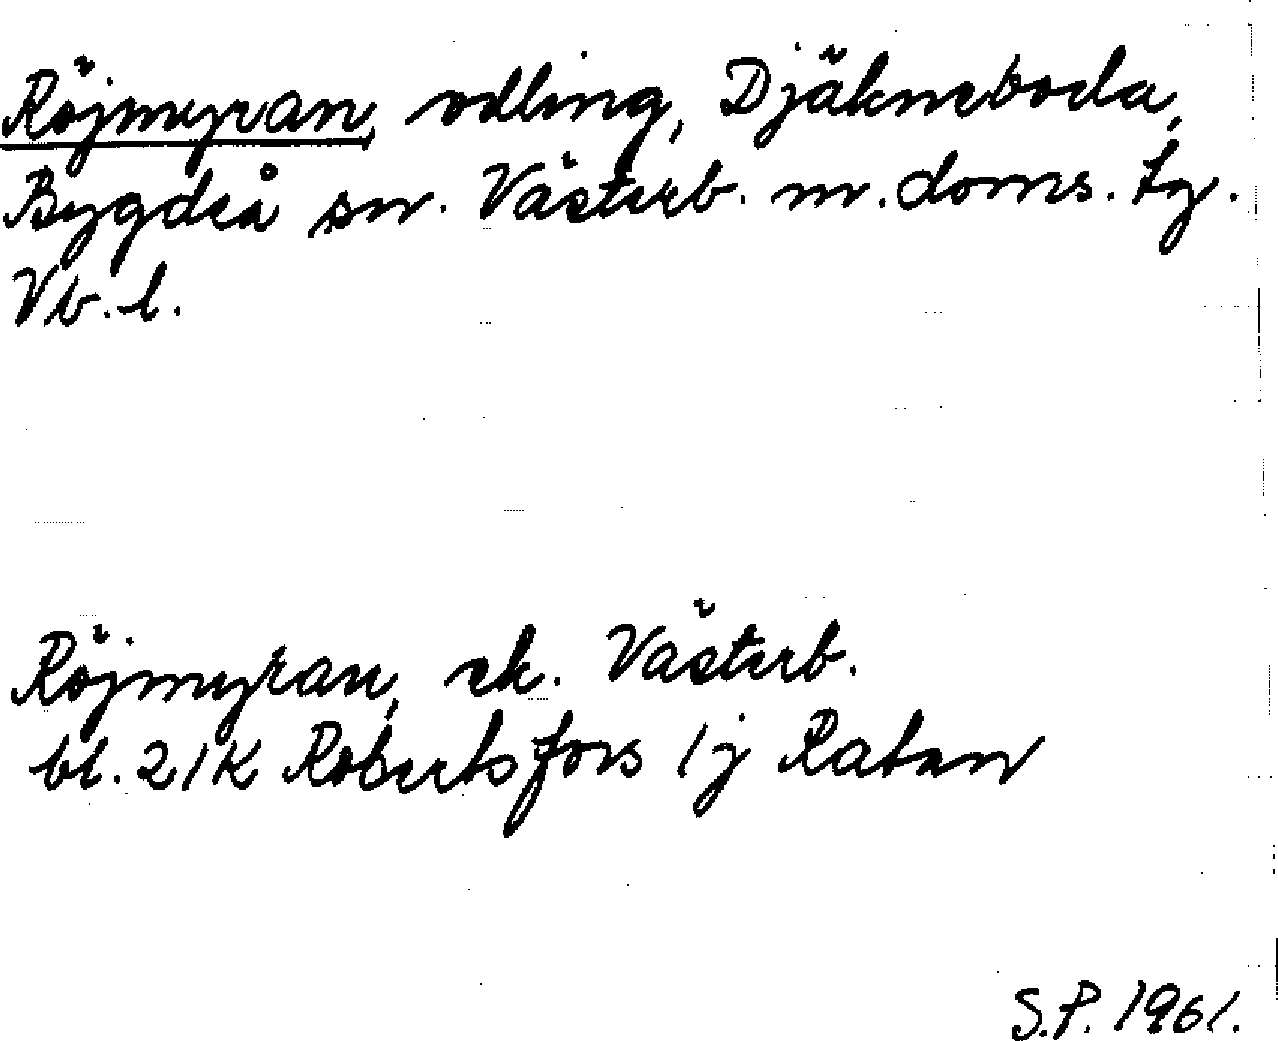 Röjmyran, odling, Djäkneboda,
Bygdeå sn. Västerb. m. doms. tg.
Vb. l.
Röjmyran, ek. Västerb.
bl. 21K Robertsfors 1j Ratan
S.P. 1961.